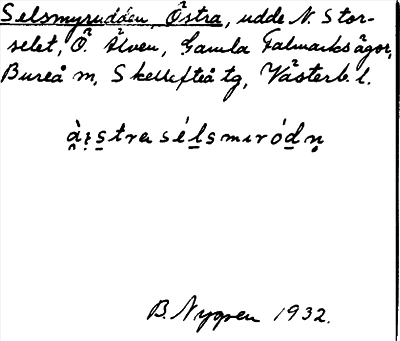 Selsmyrudden, Östra, udde N. Stor-
selet, Ö. Älven, Gamla Falmarksägor,
Bureå m, Skellefteå tg, Västerb. l.
B. Nygren 1932.